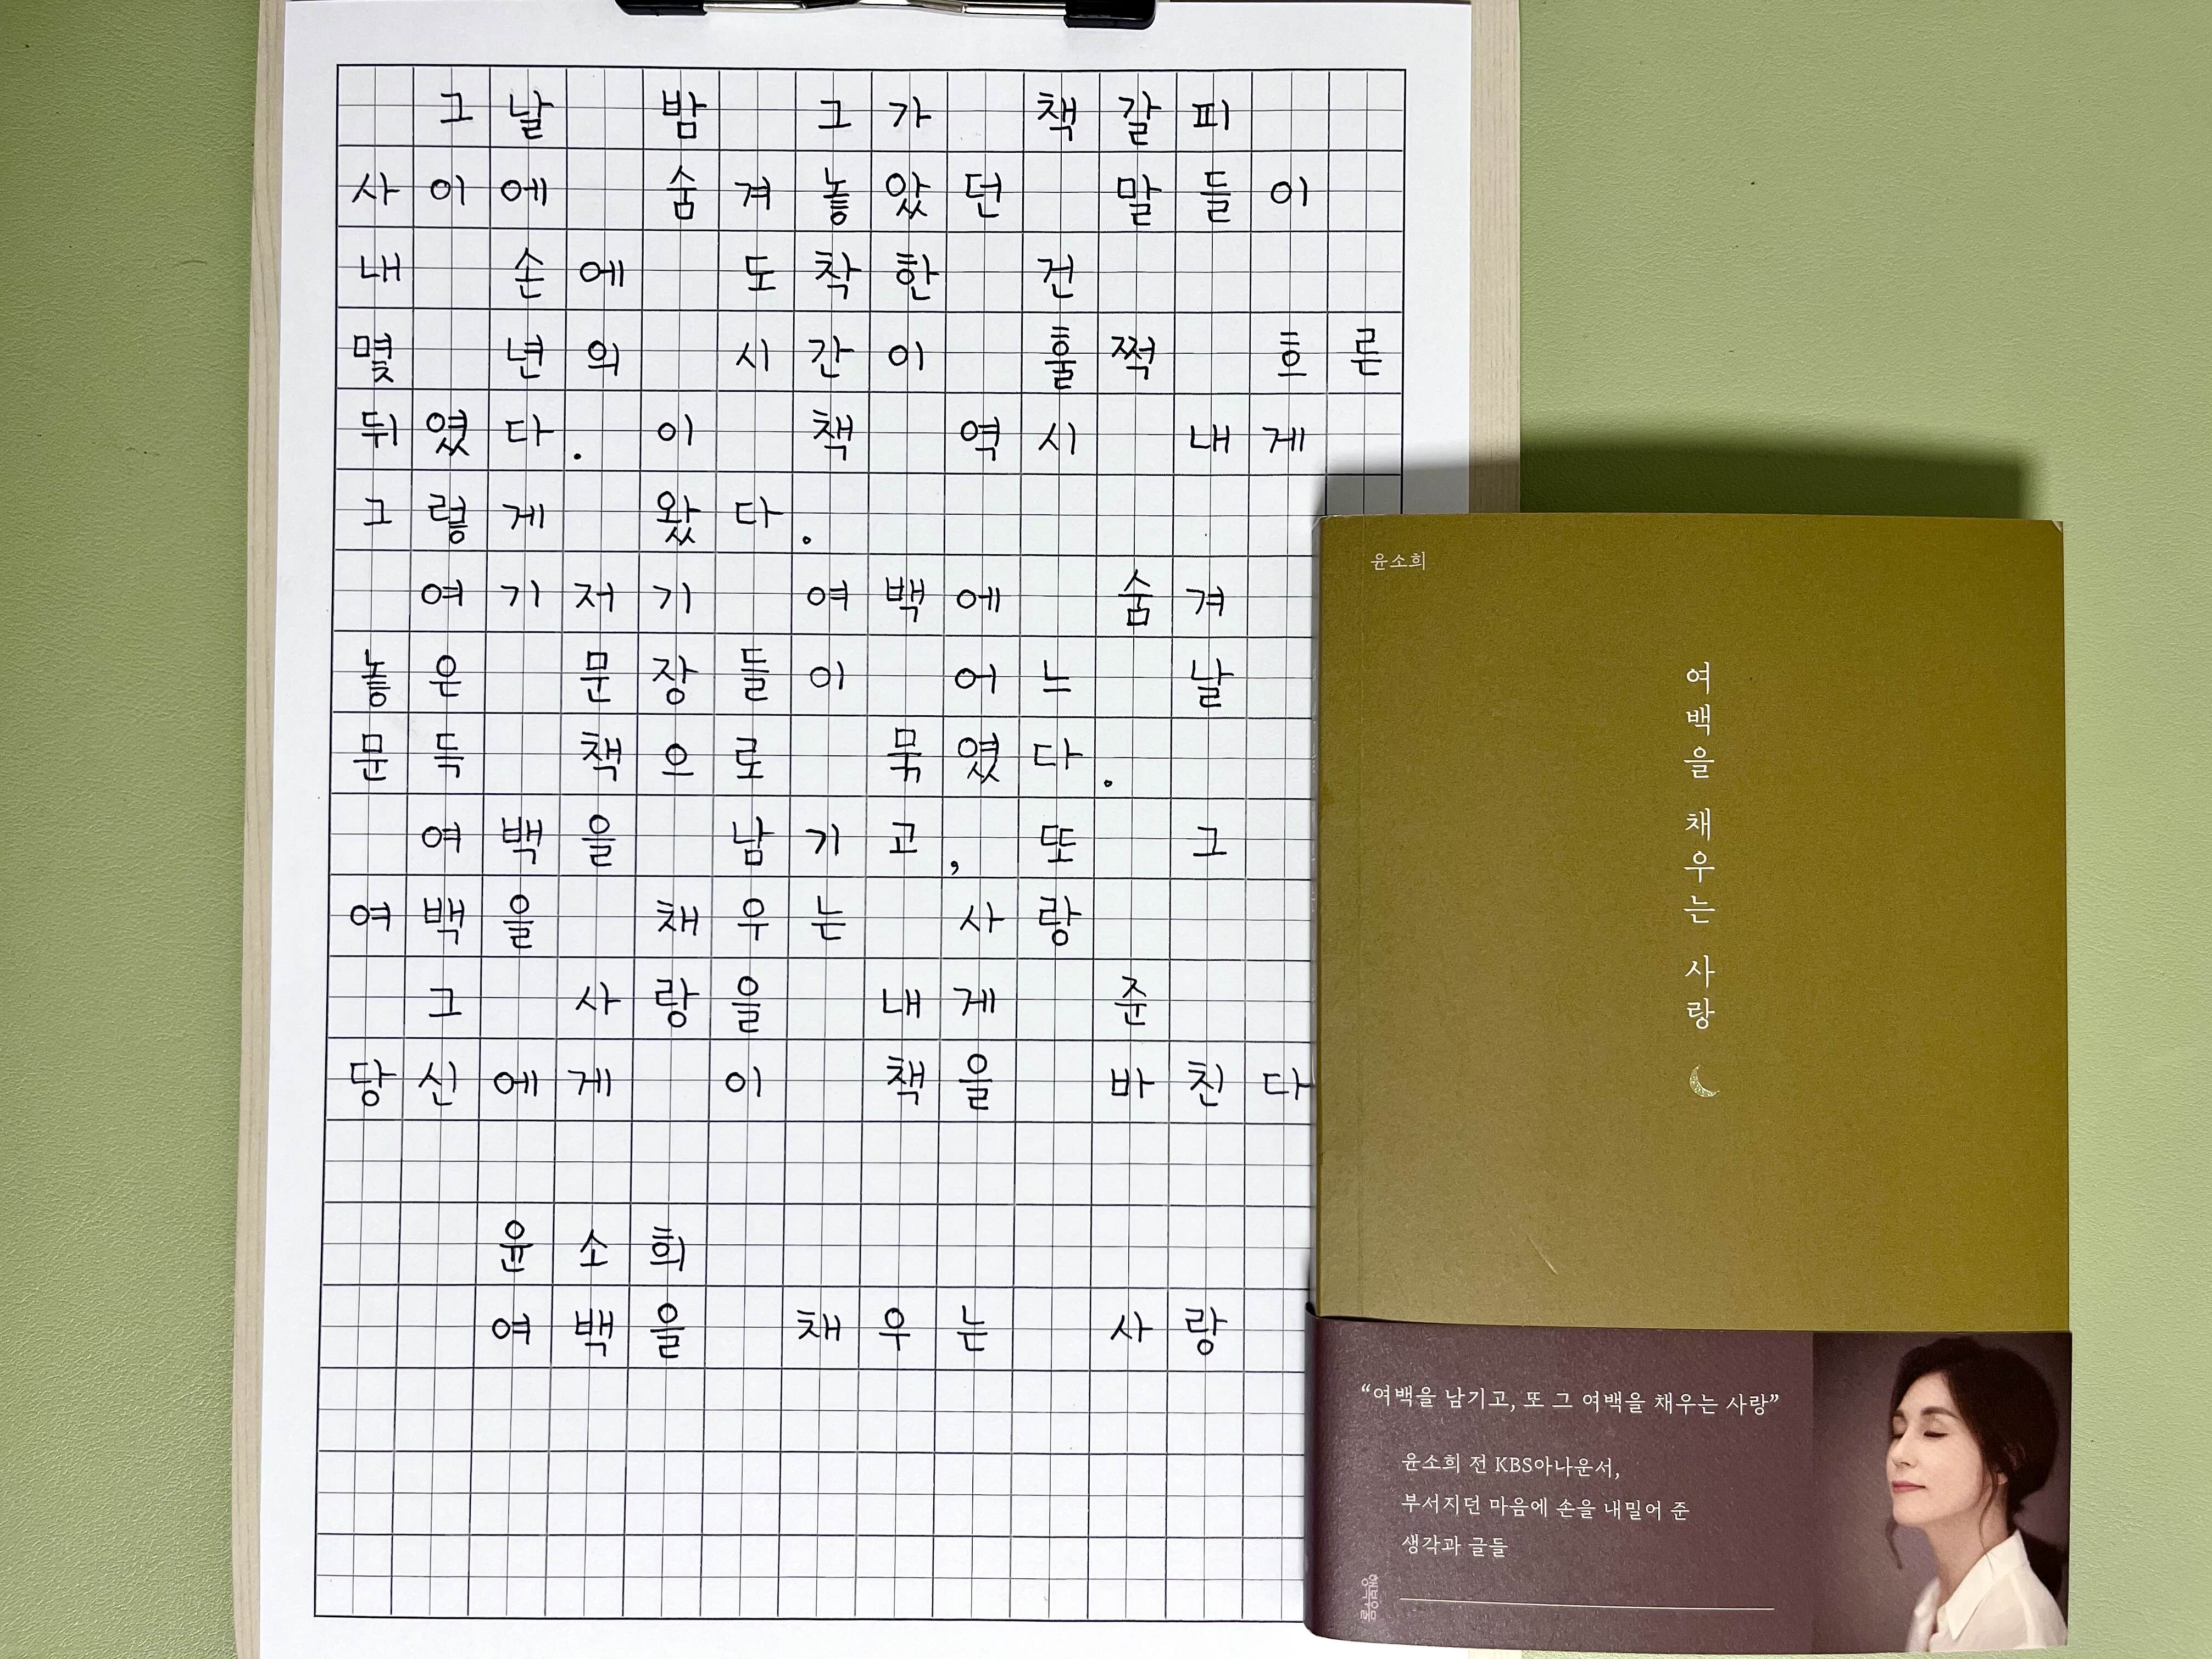 그날 밤 그가 책갈피
사이에 숨겨 놓았던 말들이
내 손에 도착한 건
몇 년의 시간이 훌쩍 흐른
뒤였다. 이 책 역시 내게
그렇게 왔다.
여기저기 여백에 숨겨
놓은 문장들이 어느 날
문득 책으로 묶였다.
여백을 남기고, 또 그
여백을 채우는 사랑
그 사랑을 내게 준
당신에게 이 책을 바친다
윤소희
여백을 채우는 사랑
윤소희
여백을 채우는 사랑
“여백을 남기고, 또 그 여백을 채우는 사랑”
윤소희 전 KBS아나운서,
부서지던 마음에 손을 내밀어 준
생각과 글들
행복우물